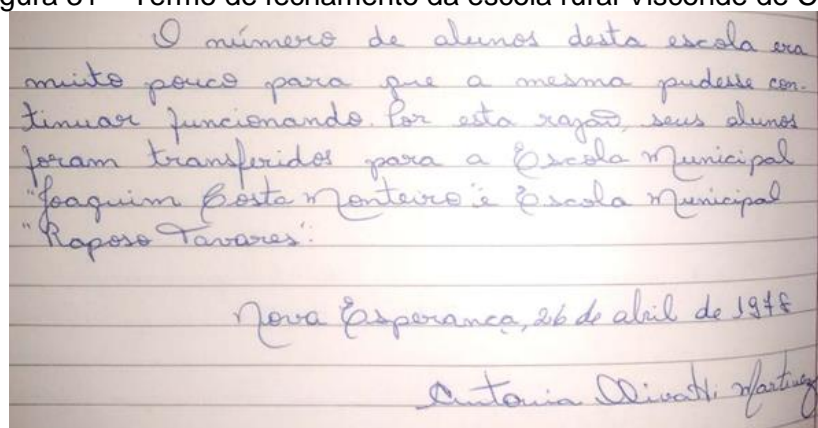 gura 31 – Termo de fechamento da escola rural Visconde de C
O número de alunos desta escola era
muito pouco para que a mesma pudesse con-
tinuar funcionando. Por esta razão, seus alunos
foram transferidos para a Escola Municipal
"Joaquim Costa Monteiro" e Escola Municipal
"Raposo Tavares".
Nova Esperança, 26 de abril de 1978
Antonia Martinez